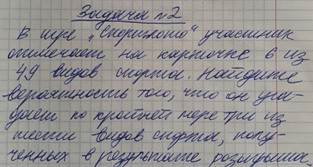 Задача №2
В игре „Спортлото" участник
отмечает на карточке 6 из
49 видов спорта. Найдите
вероятность того, что он уга-
дает по крайней мере три из
шести видов спорта, полу-
ченных в результате розыгрыша.